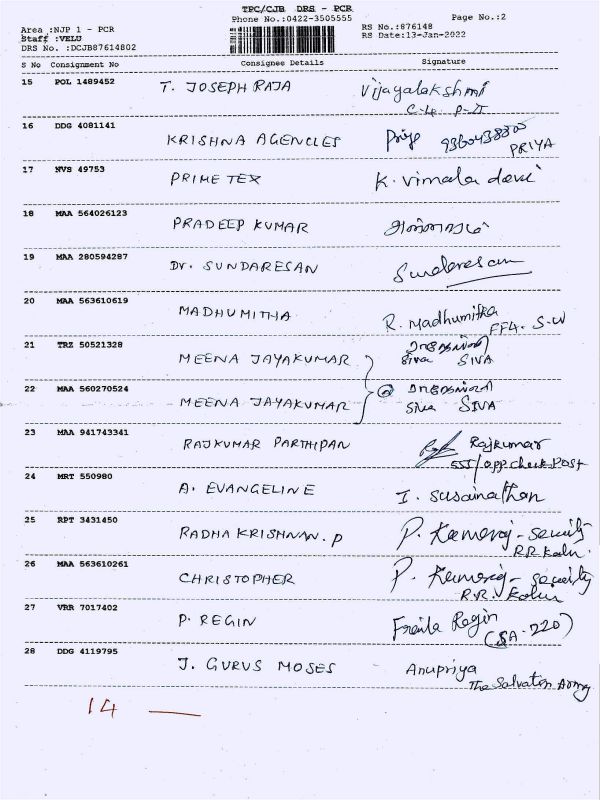 TPC/CJB DRS - PCR
Phone No.:0422-3505555 Page No.:2
Area :NJP 1 - PCR RS No.:876148
Staff :VELU RS Date:13-Jan-2022
DRS No. :DCJB87614802
S No Consignment No Consignee Details Signature
15 POL 1489452 T. JOSEPH RAJA Vijayalakshmi
16 DDG 4081141 KRISHNA AGENCIES Priya
PRIYA
17 NVS 49753 PRIME TEX K. Vimala devi
18 MAA 564026123 PRADEEP KUMAR
19 MAA 280594287 Dr. SUNDARESAN Sundaresan
20 MAA 563610619 MADHUMITHA R. Madhumitha
FF4. S-W
21 TRZ 50521328 MEENA JAYAKUMAR Siva SIVA
22 MAA 560270524 MEENA JAYAKUMAR Siva SIVA
23 MAA 941743341 RAJKUMAR PARTHIPAN Rajkumar
opp. check Post
24 MRT 550980 A. EVANGELINE I. Susainathan
25 RPT 3431450 RADHA KRISHNAN. P P. Kamaraj - Security
26 MAA 563610261 CHRISTOPHER P. Kamaraj - Security
27 VRR 7017402 P. REGIN Regin
(SA-220)
28 DDG 4119795 J. GURUS MOSES Anupriya
The Salvation Army
14 —